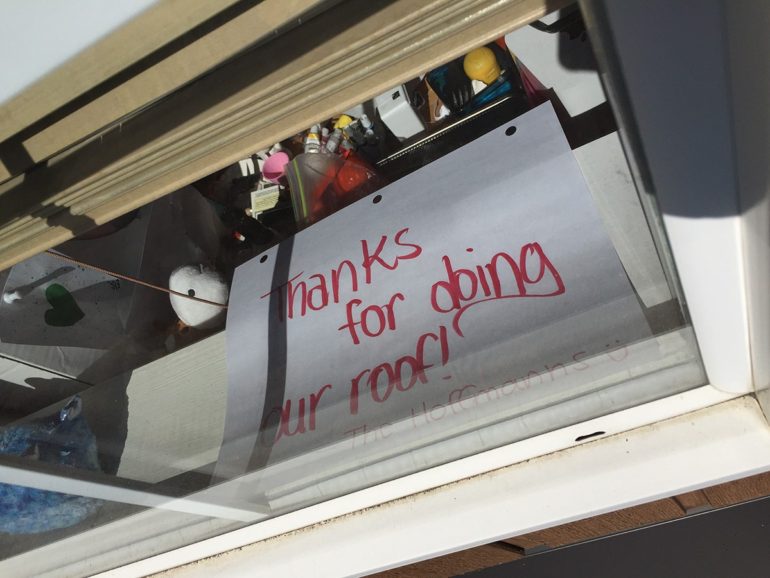 Thanks
for doing
our roof!
The Hoffmanns